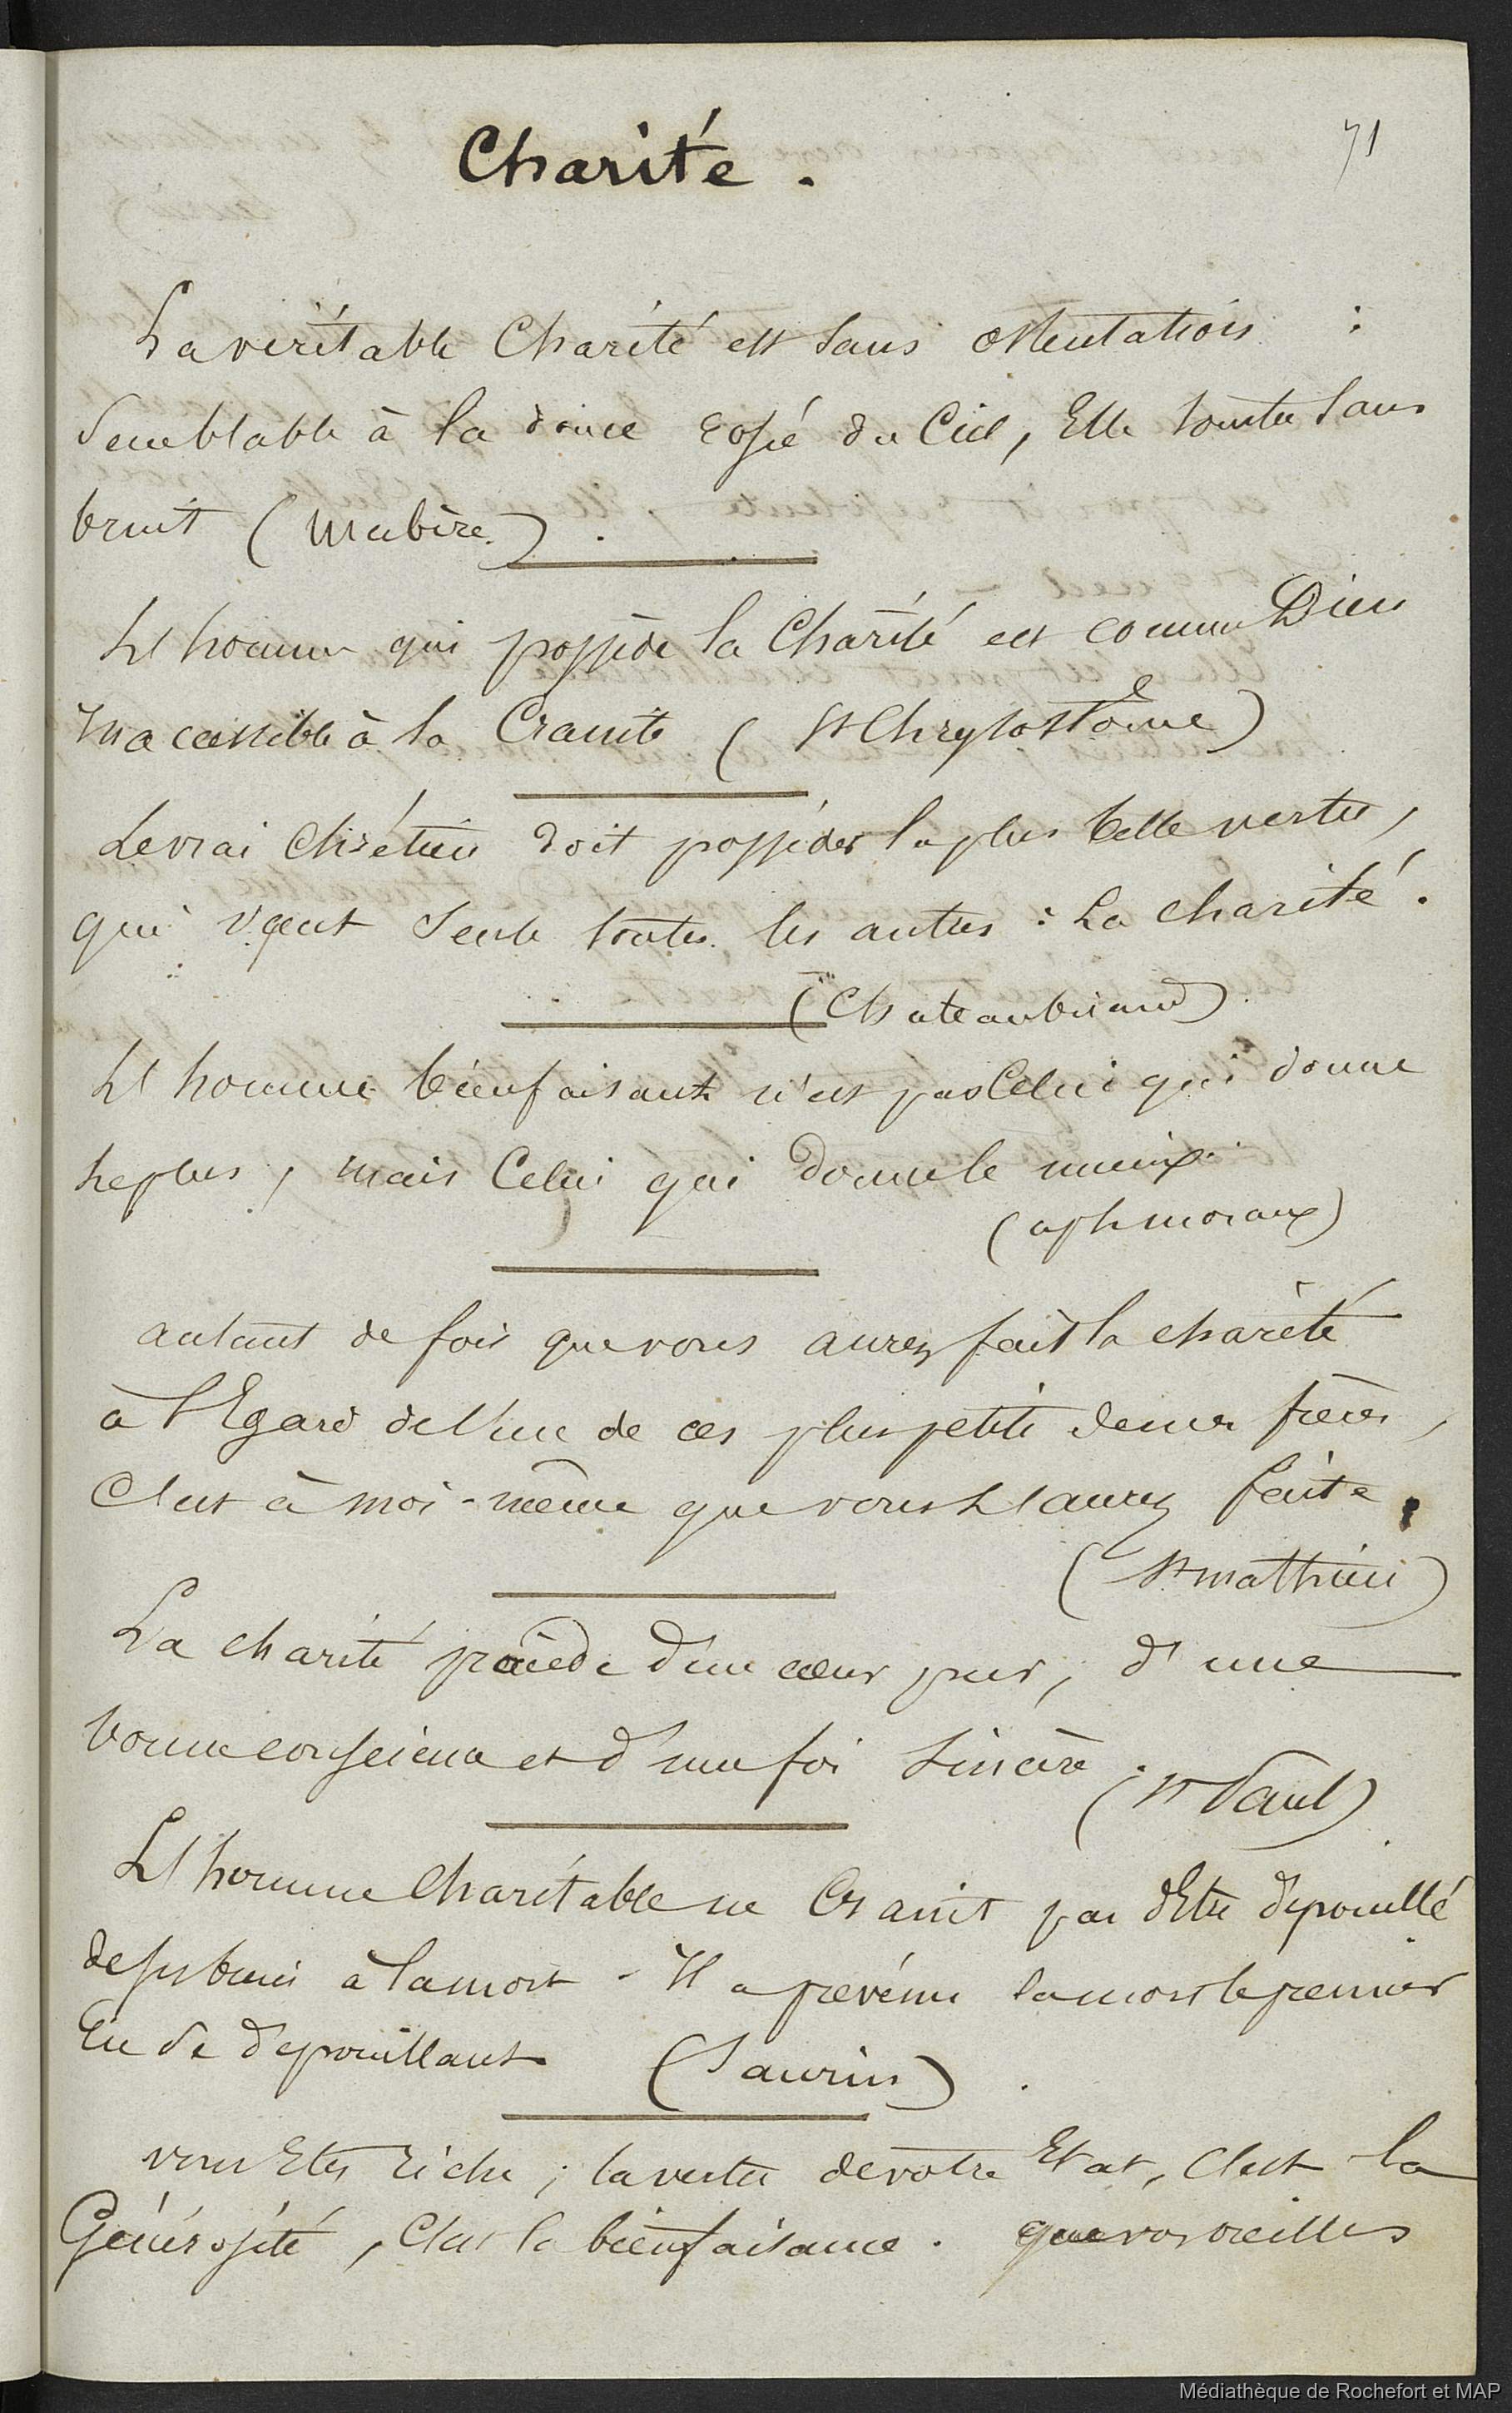 Charité.
71
La véritable Charité est sans ostentation :
Semblable à la douce rosée du Ciel, Elle tombe sans
bruit (Mabire).
L'homme qui possède la Charité est comme Dieu
Inaccessible à la Crainte (St Chrysostôme)
Le vrai Chrétien doit posséder la plus belle vertu,
qui vaut seule toutes les autres : La charité.
(Chateaubriand)
L'homme bienfaisant n'est pas Celui qui donne
le plus, mais Celui qui donne le mieux.
(aph moraux)
autant de fois que vous aurez fait la charité
à l'Egard de l'un de ces plus petits de mes frères,
C'est à moi-même que vous l'aurez faite.
(St mathieu)
La charité procède d'un cœur pur, d'une
bonne conscience et d'une foi sincère.
(St Paul)
L'homme Charitable ne Craint pas d'Etre dépouillé
de ses biens à la mort - Il a prévénu la mort le premier
En se dépouillant (Saurin).
vous Etes riche ; la vertu de votre Etat, C'est la
Générosité, C'est la bienfaisance. que vos oreilles
Médiathèque de Rochefort et MAP